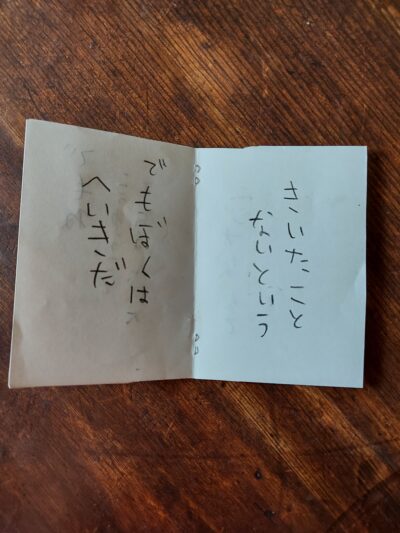 きいたこと
ないという
でもぼくは
へいきだ